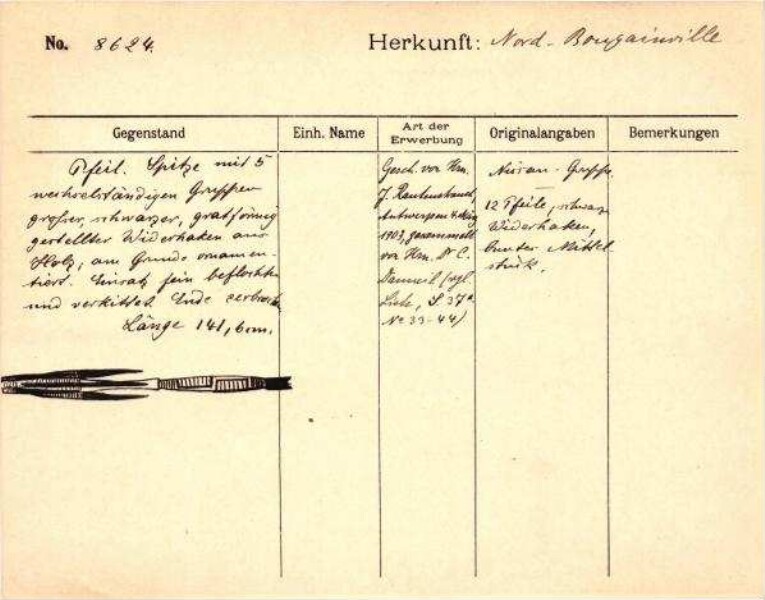 No. 8624.
Herkunft: Nord-Bougainville
Gegenstand
Einh. Name
Art der Erwerbung
Originalangaben
Bemerkungen
Pfeil. Spitze mit 5
wechselständigen Gruppen
großer, schwarzer, gratförmig
gestellter Widerhaken aus
Holz, am Grunde ornamen-
tiert. Einsatz fein beflochten
und verkittet. Ende zerbrochen
Länge 141,6 cm.
Gesch. von Hrn.
J. Rautenstrauch,
Antwerpen 4. März
1903, gesammelt
von Hrn. Dr C.
Danneil (vgl.
Liste, S 37a
No 33-44)
Gruppe.
12 Pfeile, schwarze
Widerhaken,
bunter Mittel-
stück.